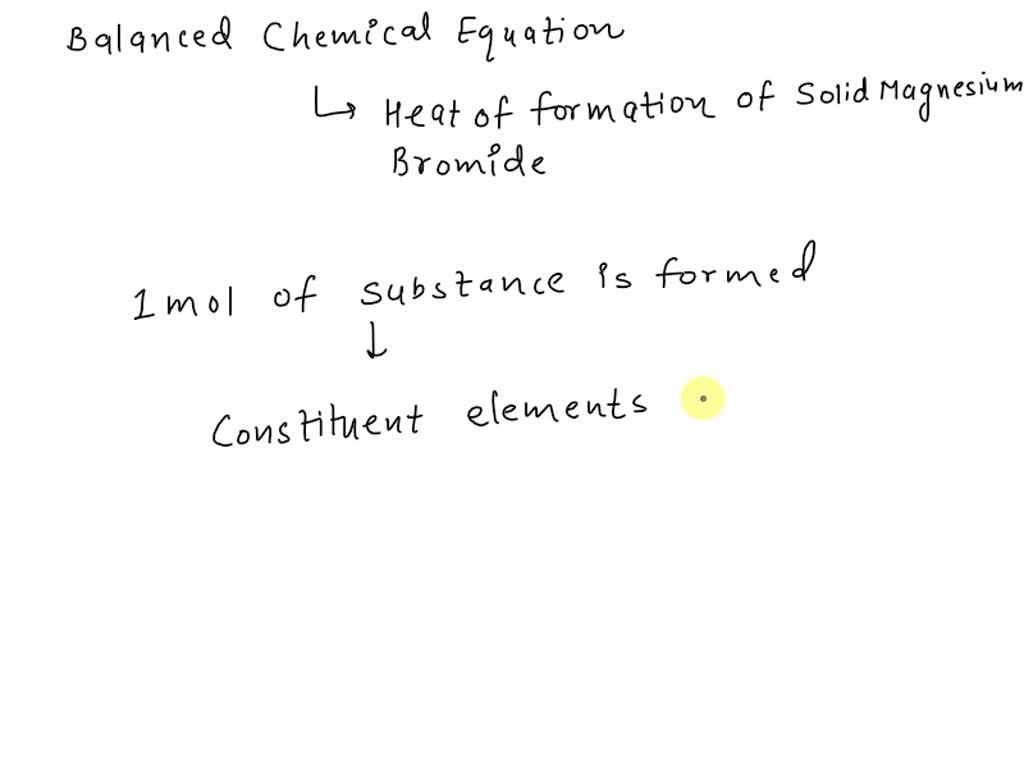 Balanced Chemical Equation
↳ Heat of formation of Solid Magnesium
Bromide
1 mol of substance is formed
↓
Constituent elements